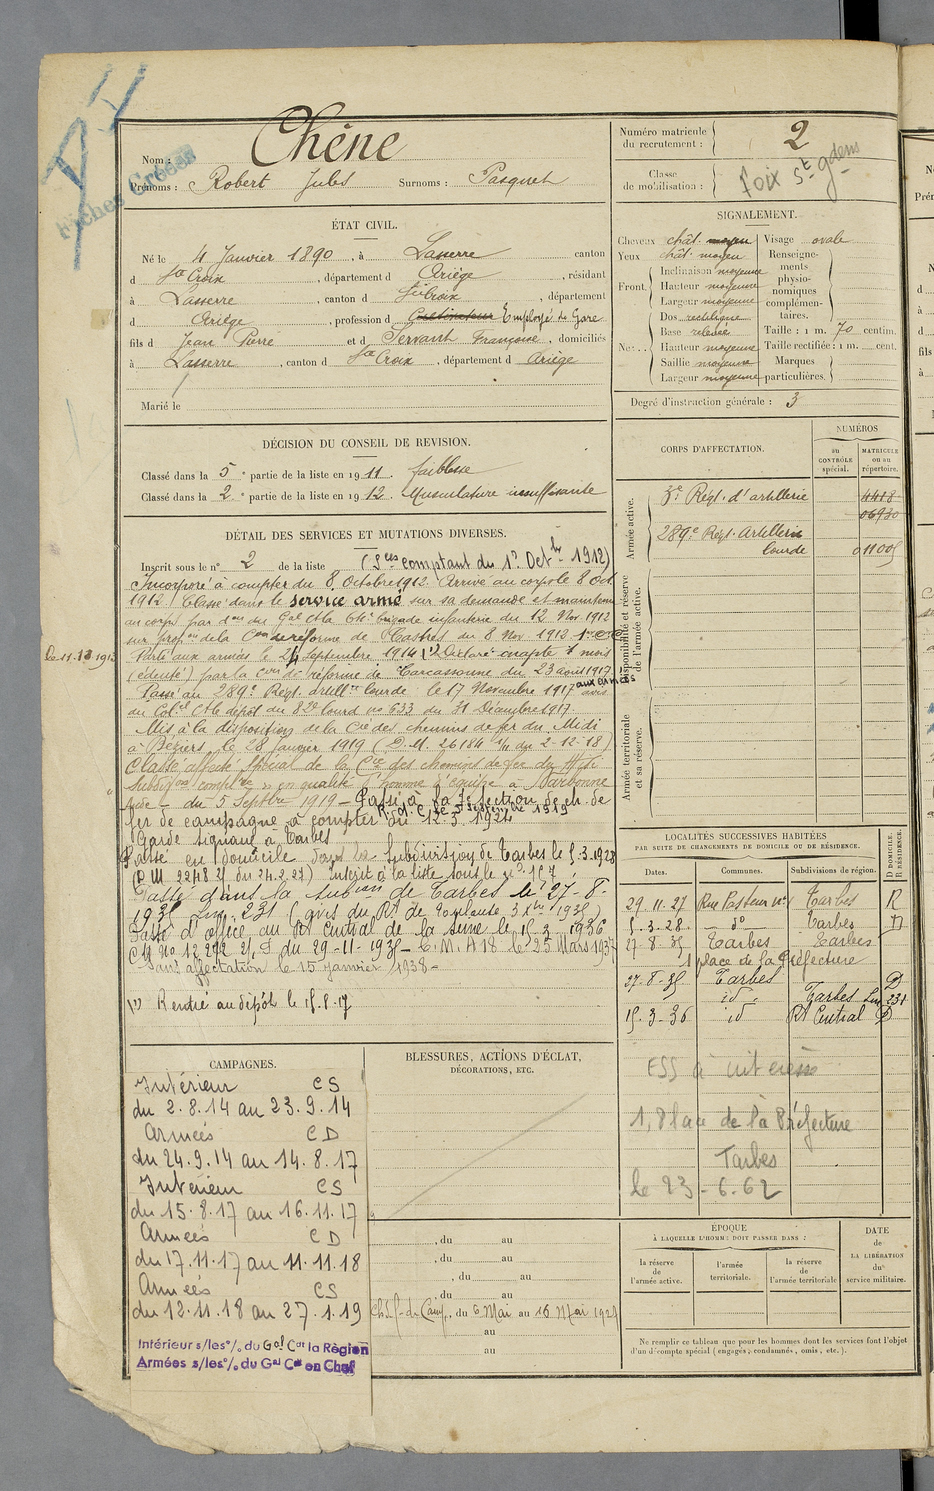 Fiches Créées
Nom : Chêne
Prénoms : Robert Jules Surnoms : Pasquet
ÉTAT CIVIL.
Né le 4 Janvier 1890, à Lasserre canton
d Ste Croix, département d Ariège, résidant
à Lasserre, canton d Ste Croix, département
d Ariège, profession d Cultivateur Employé de Gare
fils d Jean Pierre et d Servant Françoise, domiciliés
à Lasserre, canton d Ste Croix, département d Ariège
Marié le
DÉCISION DU CONSEIL DE REVISION.
Classé dans la 5e partie de la liste en 1911. faiblesse
Classé dans la 2e partie de la liste en 1912. Musculature insuffisante
DÉTAIL DES SERVICES ET MUTATIONS DIVERSES.
Inscrit sous le n° 2 de la liste (Sces comptant du 1er Octbre 1912)
Incorporé à compter du 8 Octobre 1912. Arrivé au corps le 8 Oct.
1912. Classé dans le service armé sur sa demande et maintenu
au corps par don du Gal Ct la brigade infanterie du 12 Nov 1912
sur propon de la Con de réforme de Castres du 8 Nov 1912
Le 11.12.1913
Parti aux armées le 24 Septembre 1914 (1) Déclaré inapte 1 mois
par la con de réforme de Carcassonne du 23 août 1917
Passé au 289e Régt. artillie lourde le 17 Novembre 1917 aux armées avis
du Colel Ct le dépôt du 82e lourd no 633 du 31 Décembre 1917.
Mis à la disposition de la Cie des chemins de fer du Midi
à Béziers le 28 Janvier 1919 (D.M. 26184 du 2-12-18)
Classé affecté spécial de la Cie des chemins de fer du Midi
Subdon complre en qualité d'homme d'équipe à Narbonne
du 5 Septbre 1919 - Passé à la 7e section de ch. de
fer de campagne à compter du 12.5.1924
Garde signaux à Tarbes
Passé en domicile dans la Subdivision de Tarbes le 5.3.1928
(D M 2248 du 24.2.27) Inscrit à la liste sous le
Passé dans la subon de Tarbes le 27-8-
1935 Lim. 231 (avis du Rt de Toulouse 3 Xbre 1935)
Passé d'office au Rt central de la Seine le 15-3-1936
du 29-11-1935 - C.M.A 18 le 25 Mars 1937
Sans affectation le 15 janvier 1938 -
(1) Rentré au dépôt le 15.8.17
CAMPAGNES.
Intérieur CS
du 2.8.14 au 23.9.14
Armées CD
du 24.9.14 au 14.8.17
Intérieur CS
du 15.8.17 au 16.11.17
Armées CD
du 17.11.17 au 11.11.18
Armées CS
du 12.11.18 au 27.1.19
Intérieur s/les o/. du Gal Ct la Région
Armées s/les o/. du Gal Ct en Chef
BLESSURES, ACTIONS D'ÉCLAT,
DÉCORATIONS, ETC.
, du au
, du au
, du au
, du au
, du 6 Mai au 16 Mai 1921
au
au
Numéro matricule
du recrutement : 2
Classe
de mobilisation : Foix St Gdens
SIGNALEMENT.
Cheveux chât. moyen
Yeux chât. moyen
Front. Inclinaison moyenne
Hauteur moyenne
Largeur moyenne
Nez... Dos rectiligne
Base relevée
Hauteur moyenne
Saillie moyenne
Largeur moyenne
Visage ovale
Renseigne-
ments
physio-
nomiques
complémen-
taires.
Taille : 1 m. 70 centim.
Taille rectifiée : 1 m. cent.
Marques
particulières.
Degré d'instruction générale : 3
CORPS D'AFFECTATION.
NUMÉROS
au
CONTRÔLE
spécial.
MATRICULE
ou au
répertoire.
Armée active.
3e Régt. d'artillerie 4418
06930
289e Régt. Artillerie
lourde 011005
Disponibilité et réserve
de l'armée active.
Armée territoriale
et sa réserve.
LOCALITÉS SUCCESSIVES HABITÉES
PAR SUITE DE CHANGEMENTS DE DOMICILE OU DE RÉSIDENCE.
Dates. Communes. Subdivisions de région. D DOMICILE. R RÉSIDENCE.
29.11.27 Rue Pasteur Tarbes R
5.3.28. do Tarbes D
27-8-35 Tarbes Tarbes
1 place de la Préfecture
27-8-35 Tarbes D
id Tarbes Lim 231
15-3-36 id Rt Central D
ESS à intéressé
1, Place de la Préfecture
Tarbes
le 23-6-62
ÉPOQUE
À LAQUELLE L'HOMME DOIT PASSER DANS :
la réserve
de
l'armée active.
l'armée
territoriale.
la réserve
de
l'armée territoriale
DATE
de
LA LIBÉRATION
du
service militaire.
Ne remplir ce tableau que pour les hommes dont les services font l'objet
d'un décompte spécial (engagés, condamnés, omis, etc.).